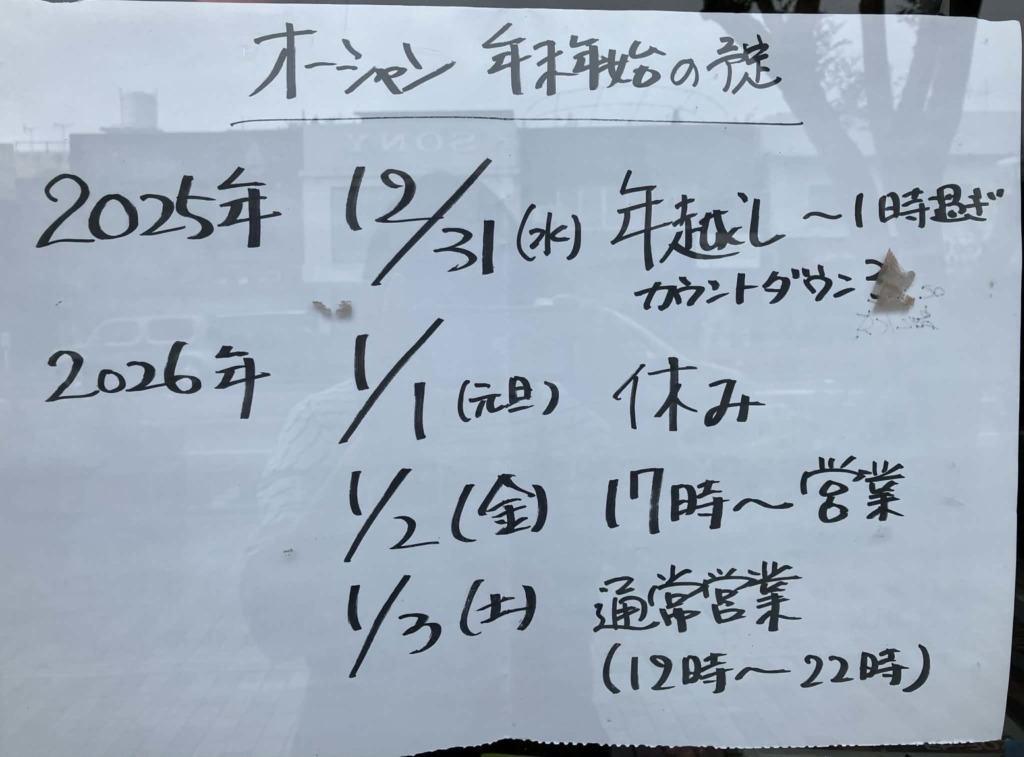 オーシャン 年末年始の予定
2025年 12/31(水) 年越し ～1時過ぎ
カウントダウン
2026年 1/1(元旦) 休み
1/2(金) 17時～営業
1/3(土) 通常営業
(12時～22時)